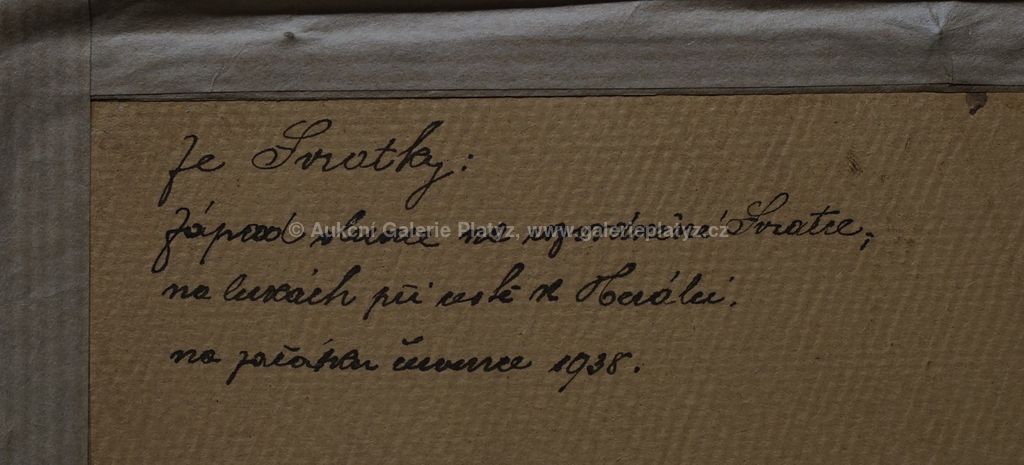 Ze Svratky:
Západ slunce na vyschlé Svratce,
na lukách při cestě k Herálci.
na začátku července 1938.
© Aukční Galerie Platýz, www.galerieplatyz.cz